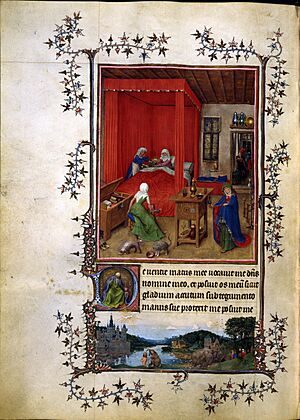 De uentre matris mee uocauit me dñs
nomine meo, et posuit os meũ sicut
gladium acutum sub tegumento
manus sue protexit me posuit me